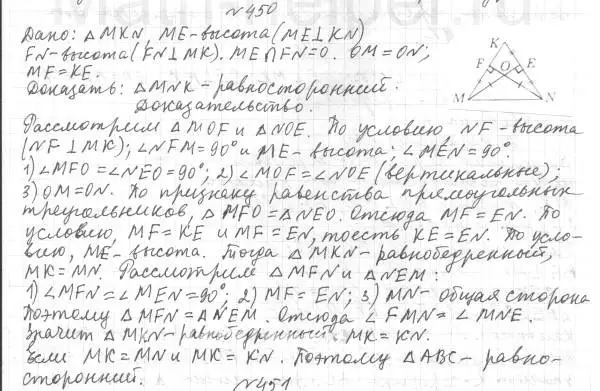 №450
Дано: △MKN, ME-высота (ME⊥KN)
FN-высота (FN⊥MK). ME∩FN=O. OM=ON;
MF=KE.
Доказать: △MNK-равносторонний.
Доказательство.
K
F O E
M N
Рассмотрим △MOF и △NOE. По условию, NF-высота
(NF⊥MK); ∠NFM=90° и ME-высота; ∠MEN=90°.
1) ∠MFO=∠NEO=90°; 2) ∠MOF=∠NOE (вертикальные);
3) OM=ON. По признаку равенства прямоугольных
треугольников, △MFO=△NEO. Отсюда MF=EN. По
условию, MF=KE и MF=EN, тоесть KE=EN. По усло-
вию, ME-высота. Тогда △MKN-равнобедренный,
MK=MN. Рассмотрим △MFN и △NEM:
1) ∠MFN=∠MEN=90°; 2) MF=EN; 3) MN-общая сторона
Поэтому △MFN=△NEM. Отсюда ∠FMN=∠MNE.
Значит △MKN-равнобедренный. MK=KN.
Если MK=MN и MK=KN. Поэтому △ABC-равно-
сторонний.
№451